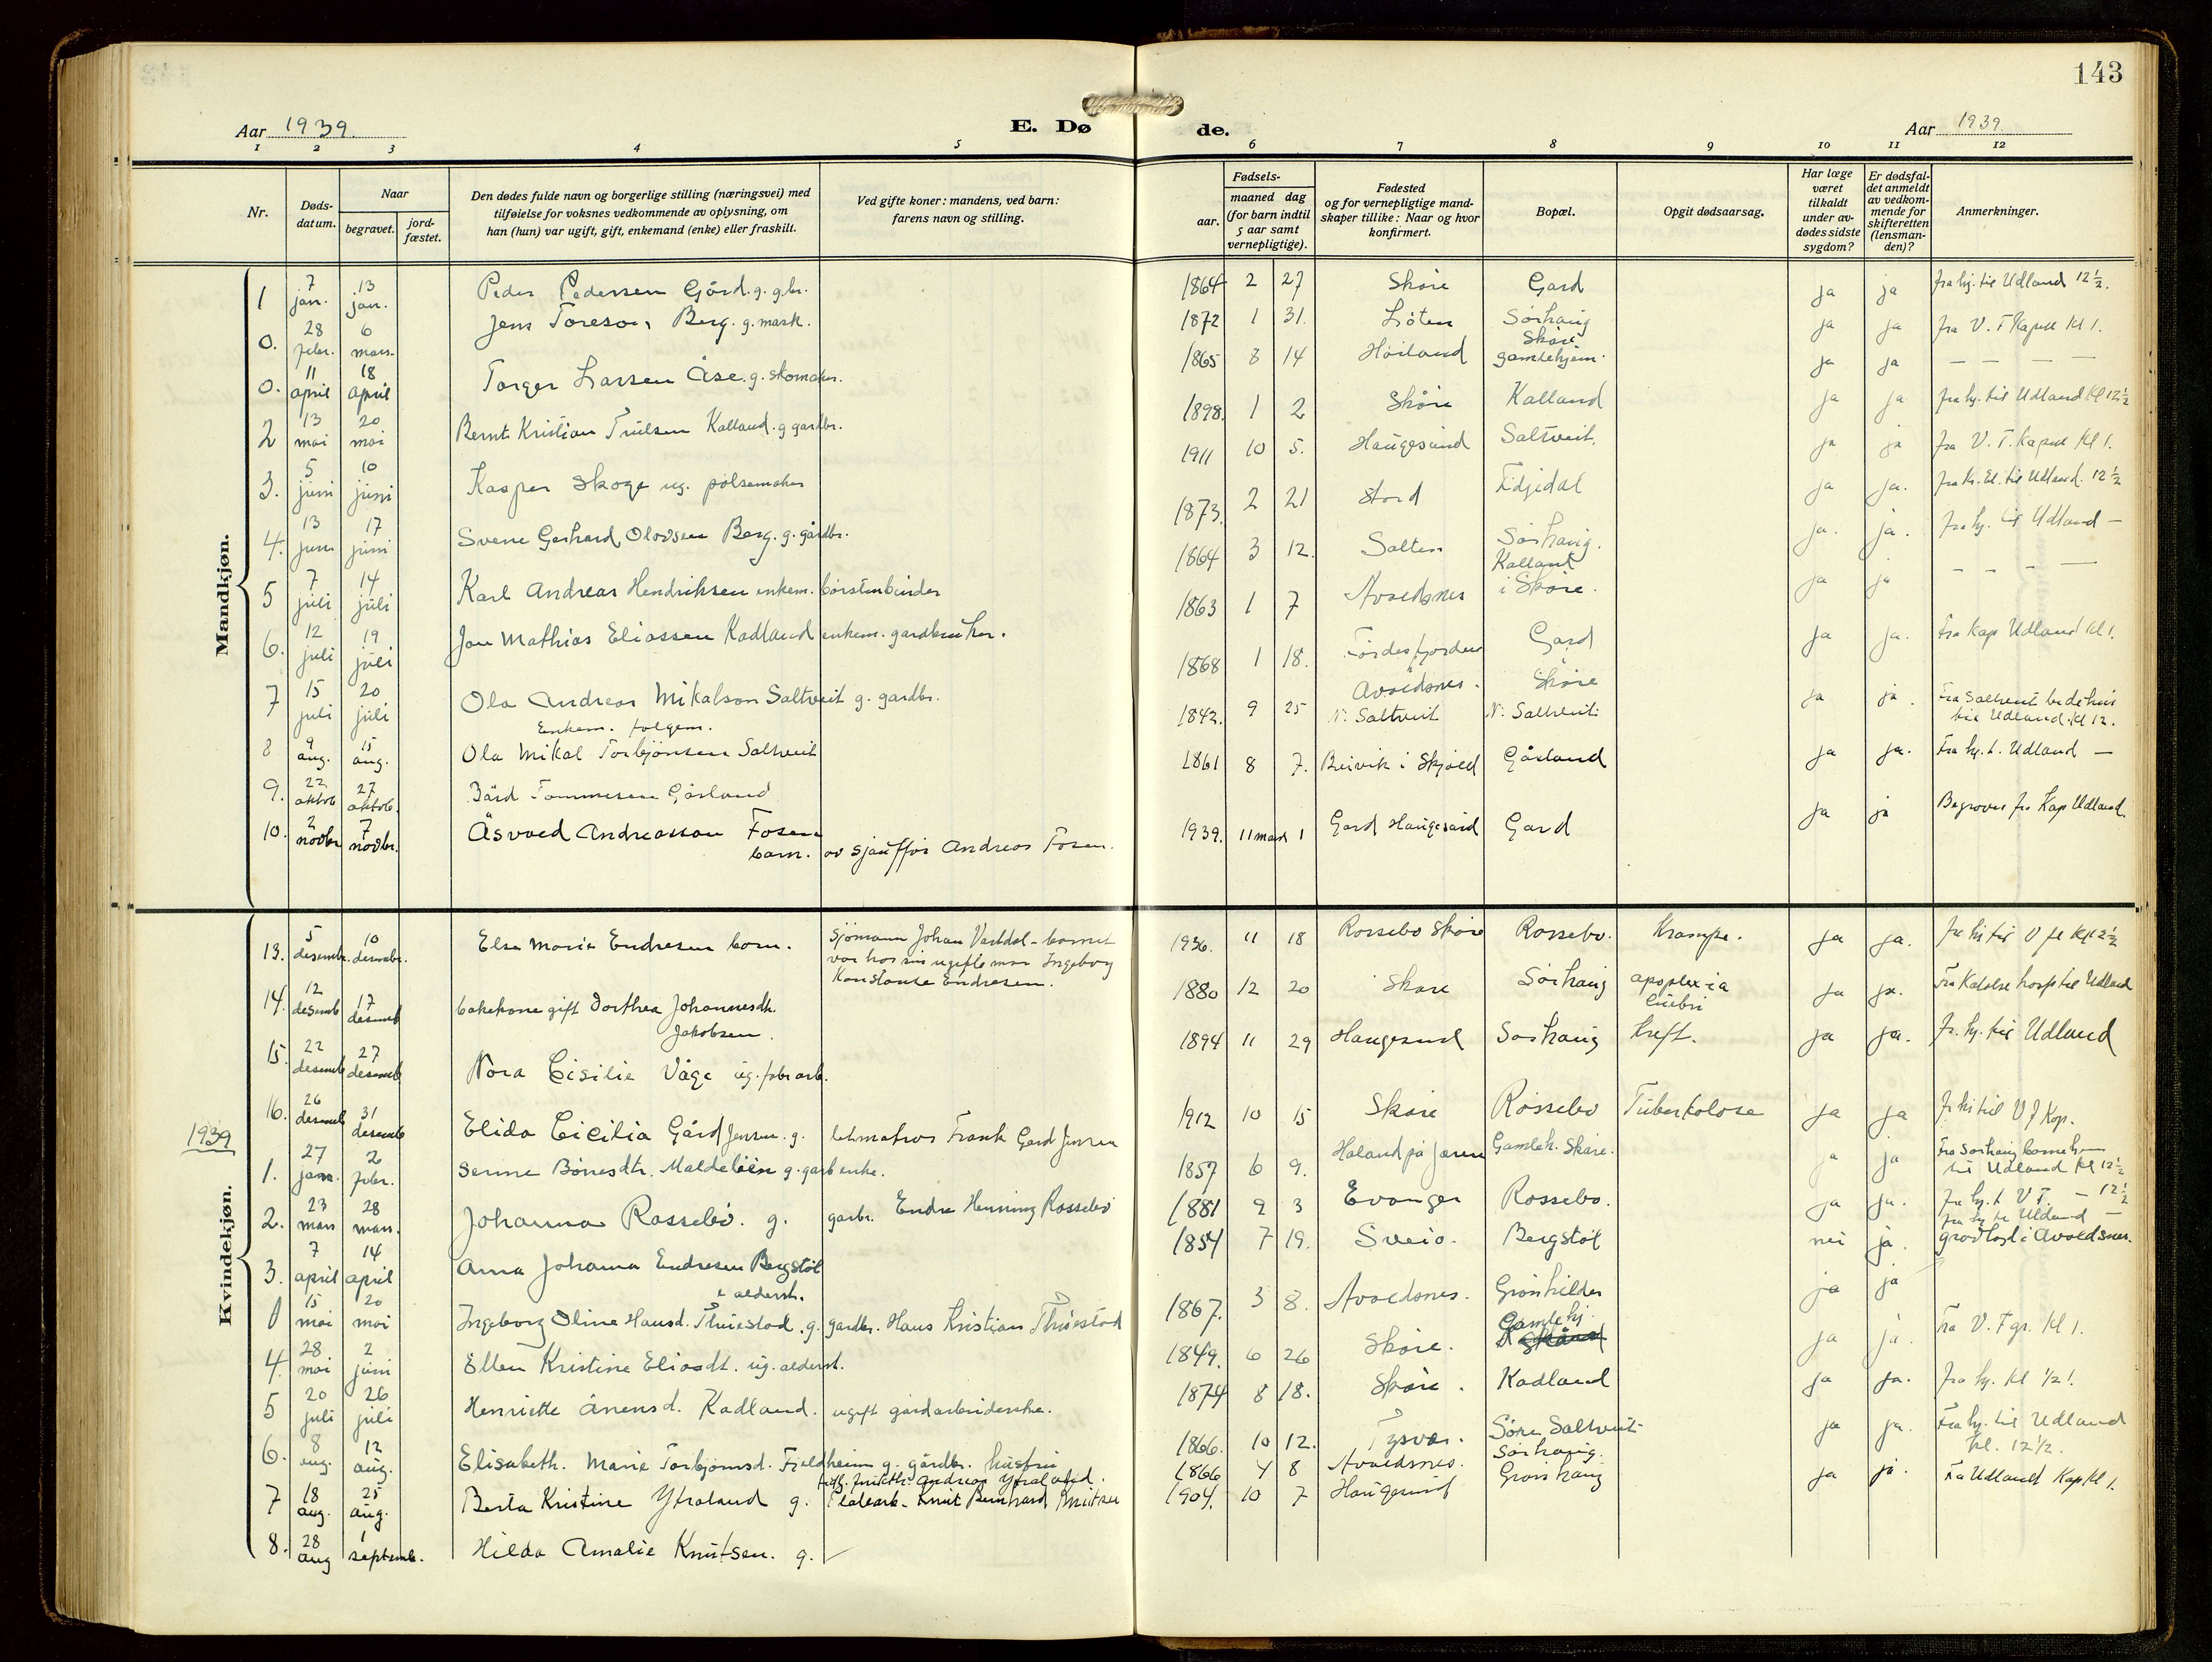 143
Aar 1939.
E. Dø
de.
Aar 1939.
1 2 3 4 5 6 7 8 9 10 11 12
Nr.
Døds-
datum.
Naar
begravet.
jord-
fæstet.
Den dødes fulde navn og borgerlige stilling (næringsvei) med
tilføielse for voksnes vedkommende av oplysning, om
han (hun) var ugift, gift, enkemand (enke) eller fraskilt.
Ved gifte koner: mandens, ved barn:
farens navn og stilling.
Fødsels-
aar.
maaned dag
(for barn indtil
5 aar samt
vernepligtige).
Fødested
og for vernepligtige mand-
skaper tillike: Naar og hvor
konfirmert.
Bopæl.
Opgit dødsaarsag.
Har læge
været
tilkaldt
under av-
dødes sidste
sygdom?
Er dødsfal-
det anmeldt
av vedkom-
mende for
skifteretten
(lensman-
den)?
Anmerkninger.
Mandkjøn.
1 7 jan. 13 jan. Peder Pedersen Gård. g. gbr. 1864 2 27 Skåre Gard ja ja fra hj. til Udland 12½.
0. 28 febr. 6 mars. Jens Toreson Berg. g. mask. 1872 1 31. Löten Sörhaug ja ja fra V. T Kapell kl 1.
0. 11 april 18 april Torger Larsen Åse. g. skomaker. 1865 8 14 Höiland Skåre gamlehjem. ja ja — — — —
2 13 mai 20 mai Bernt Kristian Trulsen Kalland. g gardbr. 1898. 1 2 Skåre Kalland ja ja fra hj. til Udland kl 12½
3. 5 juni 10 juni Kasper Skoge ug. pölsemaker 1911 10 5. Haugesund Saltveit. ja ja fra V. T. Kapell kl 1.
4. 13 juni 17 juni Svene Gerhard Olavsen Berg. g. gårdbr. 1873. 2 21 Stord ja ja. til Udland. 12½
5 7 juli 14 juli Karl Andreas Hendriksen enkem. börstenbinder 1864 3 12. Salten Sörhaug. ja. ja. fra hj. til Udland —
6. 12 juli 19 juli Jon Mathias Eliassen Kadland enkem. gardbruker. 1863 1 7 Avaldsnes Kalland i Skåre. ja ja — — — —
7 15 juli 20 juli Ola Andreas Mikalson Saltveit g. gardbr. 1868 1 18. Fördesfjorden Gard ja ja. Fra Kap Udland kl 1.
Avaldsnes. Skåre
8 9 aug. 15 aug. Enkem. folgem.
Ola Mikal Torbjönsen Saltveit 1842. 9 25 N. Saltveit N. Saltveit ja ja. Fra Saltveit bedehus
til Udland. kl 12.
9. 22 oktob 27 oktob. Bård Tommesen Gåsland 1861 8 7. Beivik i Skjold Gåsland ja ja. Fra hj. t. Udland —
10. 2 novbr 7 novbr. Åsvald Andreassan Fosen
barn. av sjauffor Andreas Fosen. 1939. 11 mars 1 Gard Haugesund Gard ja ja Begraves fra Kap Udland.
13. 5 desembr. 10 desembr. Else Marie Endresen barn. Sjömann Johan Vartdal - barnet
var hos sin ugifte mor Ingeborg
Konstanse Endresen. 1936. 11 18 Rossebo Skåre Rossebo. Krampe. ja ja.
14. 12 desemb 17 desemb bakekone gift Dorthea Johannesdt.
Jakobsen. 1880 12 20 Skare Sörhaug apoplexia ja ja. Fra Katolske hosp til Udland
15. 22 desemb 27 desemb Nora Cisilie Våge ug. fabr arb. 1894 11 29 Haugesund Sörhaug kreft. ja ja. fr. hj. til Udland
16. 26 desemb 31 desemb Elida Cicilia Gård Jensen. g. letmatros Frank Gard Jensen 1912 10 15 Skåre Rossebo Tuberkolose ja ja fr hj til V f Kap.
1939
Kvindekjøn.
1. 27 jan. 2 febr. Serine Bönesdtr. Maldeleien g. gardenke. 1857 6 9. Haland på Jæren Gamleh. Skåre. ja ja Fra Sörhaug barnehem
til Udland kl 12½
2. 23 mars 28 mars. Johanna Rossebö. g. garbr. Endre Henning Rossebö 1881 9 3 Evanger Rossebo. ja ja. fra hj. t. V T. — 12½
3. 7 april 14 april Anna Johanna Endresen Bergstöl
e alderst. 1854 7 19. Sveio. Bergstöl nei ja. fra hj til Udland —
gravlagt i Avaldsnes.
0 15 mai 20 mai Ingeborg Oline Hansd. Thuestad. g. gardbr. Hans Kristian Thuestad 1867. 3 8. Avaldsnes. Grönhilder ja ja
4. 28 mai 2 juni Ellen Kristine Eliasdt. ug. alderst. 1849. 6 26 Skåre. Gamlehj. ja ja. Fra V. F gr. kl 1.
5 20 juli 26 juli Henriette Ånensd. Kadland. ugift gardarbeiderske. 1874 8 18. Skåre. Kadland ja ja. fra hj. kl ½ 1.
6. 8 aug. 12 aug. Elisabeth. Marie Torbjörnsd. Fjeldheim g. gårdbr. husfru 1866. 10 12. Tysvær. Söre Saltveit ja ja. Fra hj. til Udland
kl. 12½.
7 18 aug. 25 aug. Berta Kristine Ytraland g. Andreas Ytraland. 1866 4 8 Avaldsnes. Sörhaug. ja ja. Fra Udland Kap kl 1.
8. 28 aug 1 septemb. Hilda Amalie Knutsen. g. Knut Bernhard Knutsen 1904. 10 7 Haugesund Grönhaug